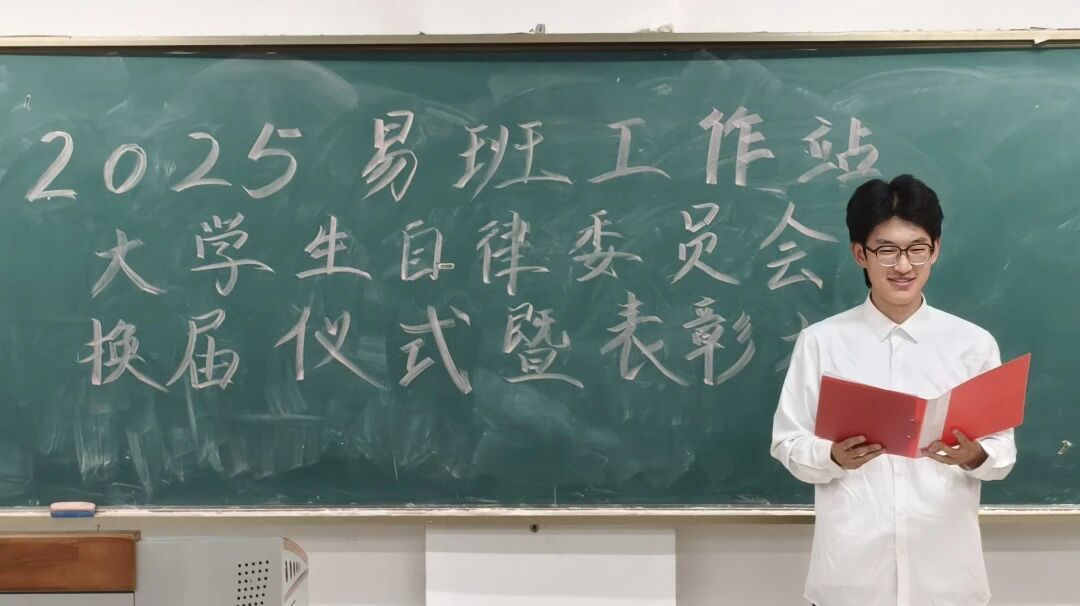 2025易班工作站
大学生自律委员会
换届仪式暨表彰